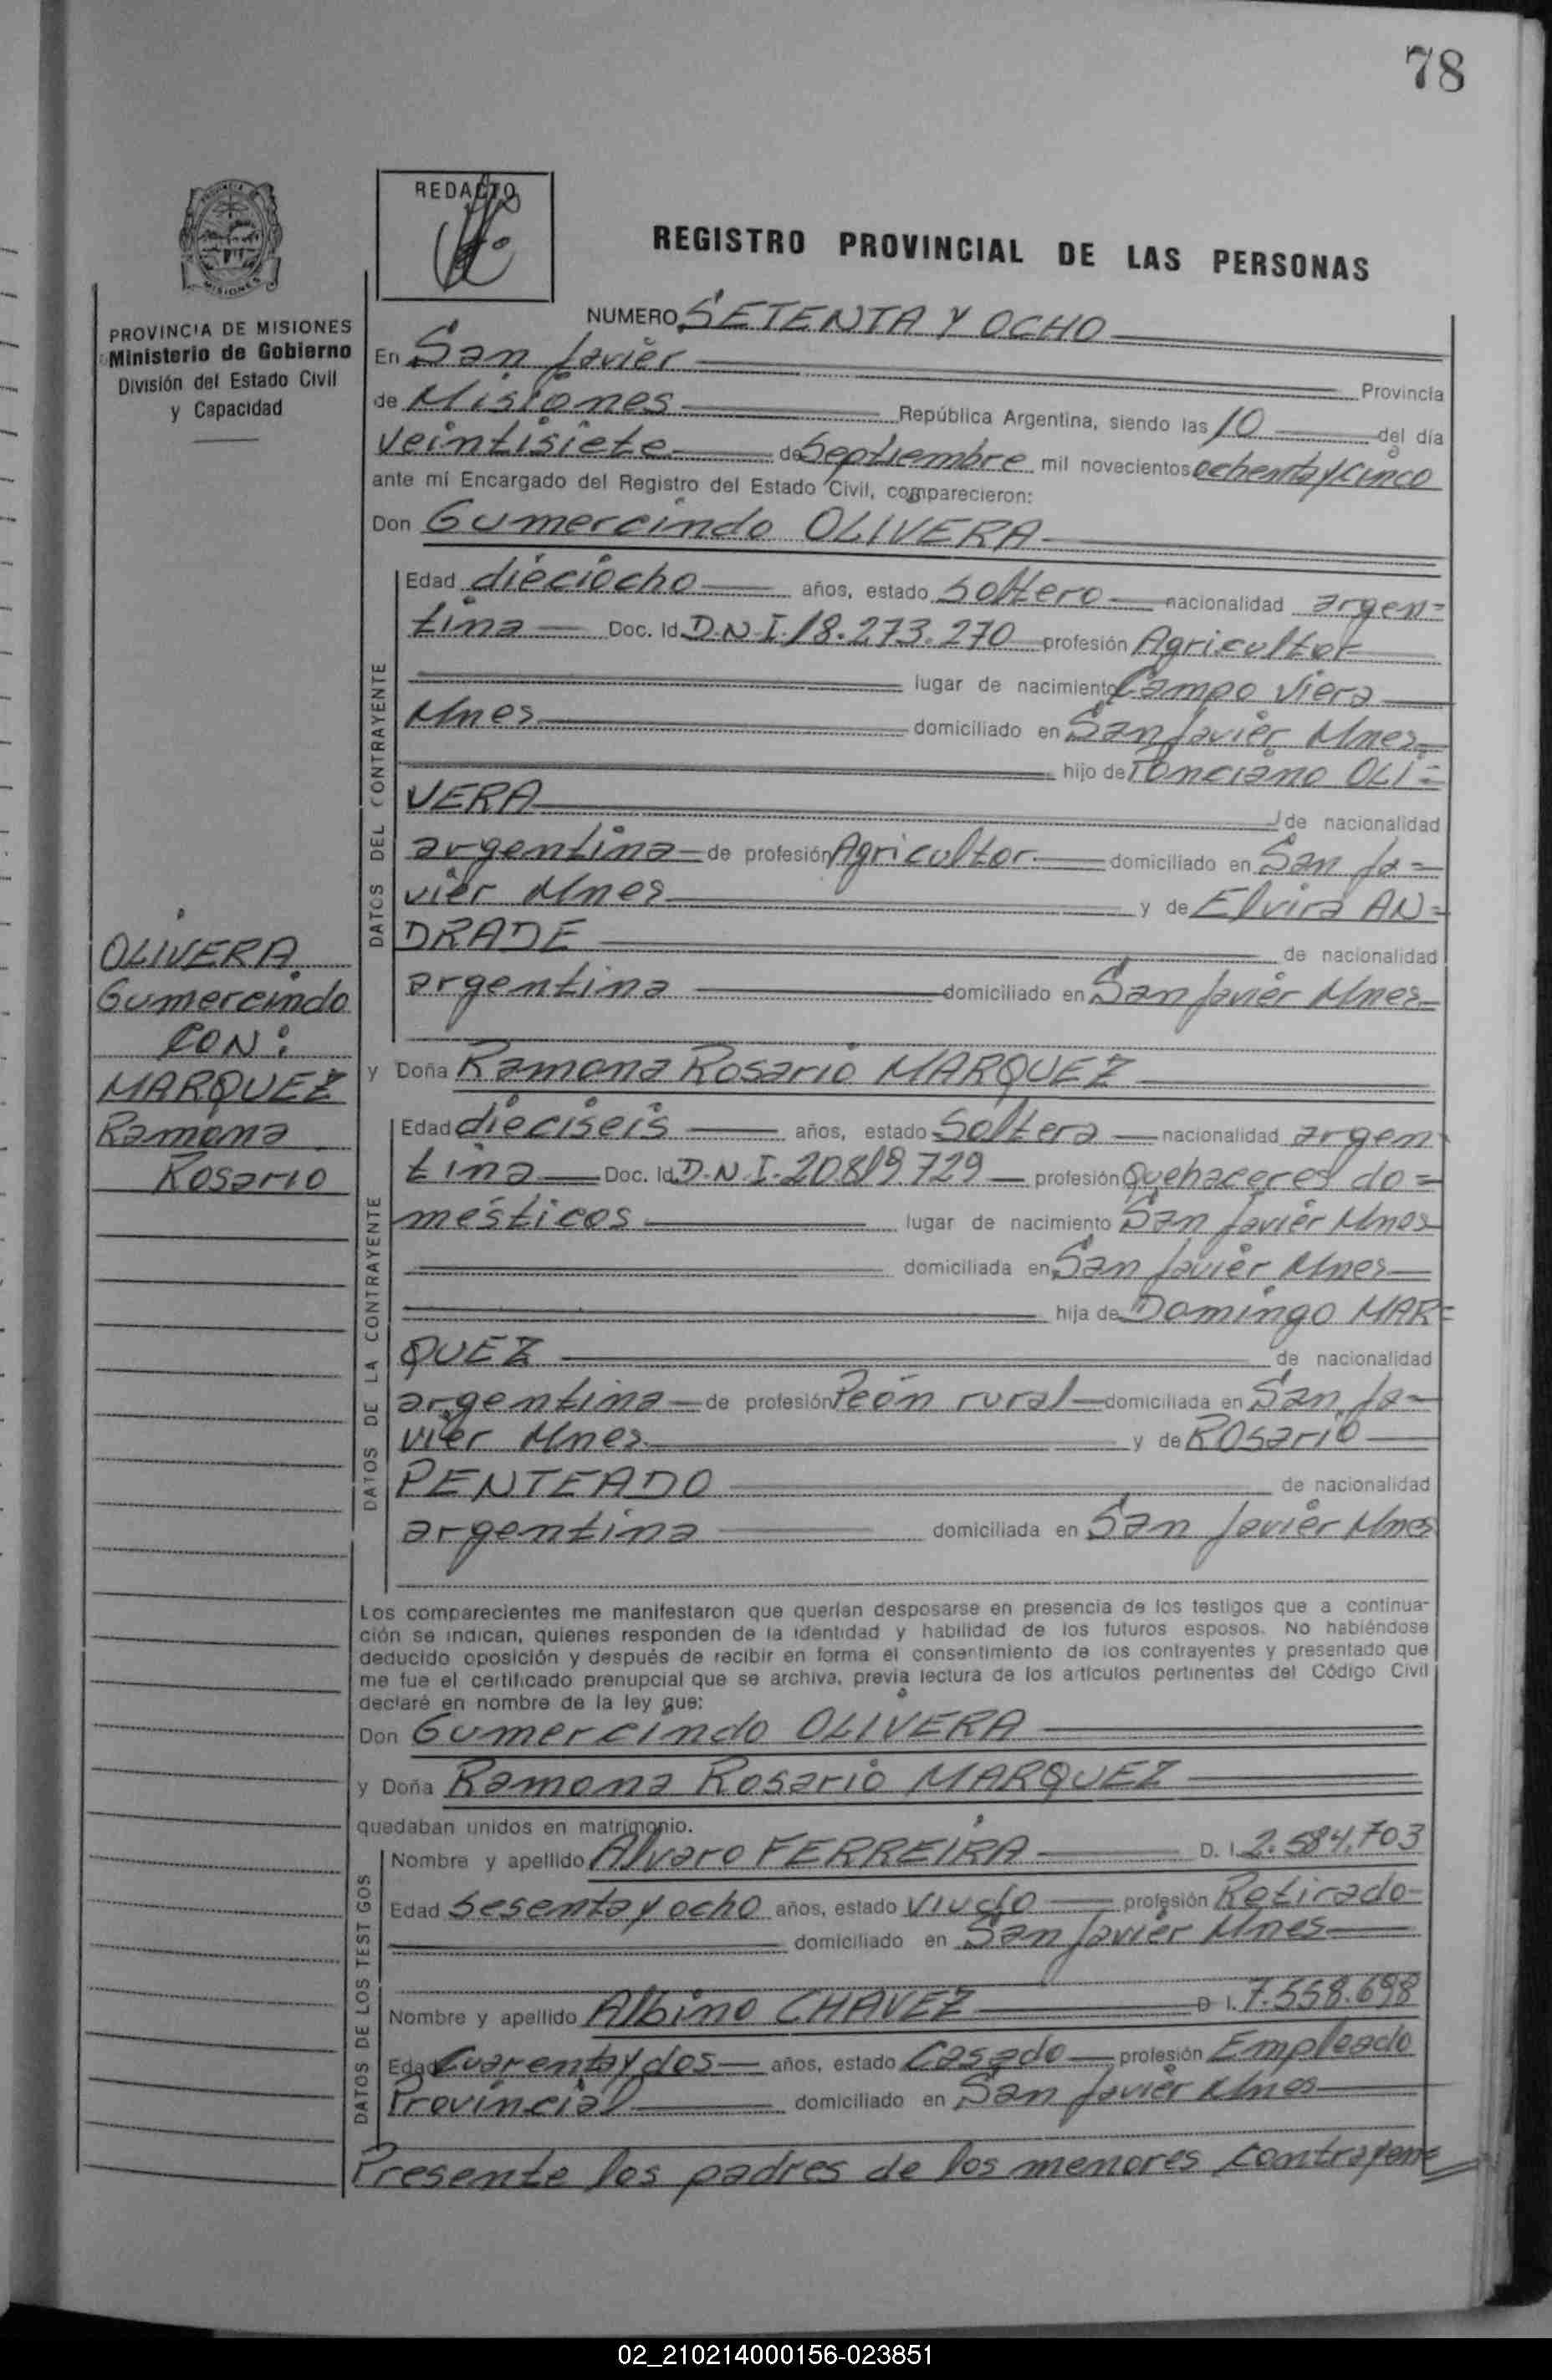 78
REDACTO
REGISTRO PROVINCIAL DE LAS PERSONAS
PROVINCIA DE MISIONES
PROVINCIA DE MISIONES
Ministerio de Gobierno
División del Estado Civil
y Capacidad
OLIVERA
Gumercindo
CON:
MARQUEZ
Ramona
Rosario
NUMERO SETENTA Y OCHO
En San Javier Provincia
de Misiones República Argentina, siendo las 10 del día
veintisiete de Septiembre mil novecientos ochenta y cinco
ante mí Encargado del Registro del Estado Civil, comparecieron:
Don Gumercindo OLIVERA
DATOS DEL CONTRAYENTE
Edad dieciocho años, estado soltero nacionalidad argen=
tina Doc. Id. D.N.I. 18.273.270 profesión Agricultor
lugar de nacimiento Campo Viera
Mnes domiciliado en San Javier Mnes
hijo de Ponciano OLI=
VERA de nacionalidad
argentina de profesión Agricultor domiciliado en San Ja=
vier Mnes y de Elvira AN=
DRADE de nacionalidad
argentina domiciliado en San Javier Mnes
y Doña Ramona Rosario MARQUEZ
DATOS DE LA CONTRAYENTE
Edad dieciseis años, estado Soltera nacionalidad argen
tina Doc. Id. D.N.I. 20819.729 profesión Quehaceres do=
mésticos lugar de nacimiento San Javier Mnes
domiciliada en San Javier Mnes
hija de Domingo MAR=
QUEZ de nacionalidad
argentina de profesión Peón rural domiciliada en San Ja=
vier Mnes y de Rosario
PENTEADO de nacionalidad
argentina domiciliada en San Javier Mnes
Los comparecientes me manifestaron que querían desposarse en presencia de los testigos que a continua-
ción se indican, quienes responden de la identidad y habilidad de los futuros esposos. No habiéndose
deducido oposición y después de recibir en forma el consentimiento de los contrayentes y presentado que
me fue el certificado prenupcial que se archiva, previa lectura de los artículos pertinentes del Código Civil
declaré en nombre de la ley que:
Don Gumercindo OLIVERA
y Doña Ramona Rosario MARQUEZ
quedaban unidos en matrimonio.
DATOS DE LOS TESTIGOS
Nombre y apellido Alvaro FERREIRA D. I. 2.584.703
Edad sesenta y ocho años, estado viudo profesión Retirado
domiciliado en San Javier Mnes
Nombre y apellido Albino CHAVEZ D. I. 7.558.698
Edad cuarenta y dos años, estado Casado profesión Empleado
Provincial domiciliado en San Javier Mnes
Presente los padres de los menores contrayene
02_210214000156-023851